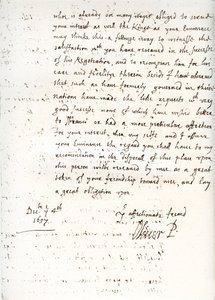 who is already so many ways obliged to intend
your interest as well the Kings as your Eminence
may thinke this a fitting way to witnesse the
satisfaction you have received in the successe
of his Negotiation, and to recompense him for his
care and fidelity therein. Besides I have observed
that such as have formerly governed in those
Nations have made the like requests with very
good successe none of which have wished better
to France or had a more particular affection
for your interest, then my selfe and I assure
your Eminence the regard you shall have to my
recommendation in the disposal of this place upon
this person will be received by me as a great
token of your friendship toward mee, and lay
a great obligation upon
Decr 4th
1657
Yr affectionate friend
Oliver P